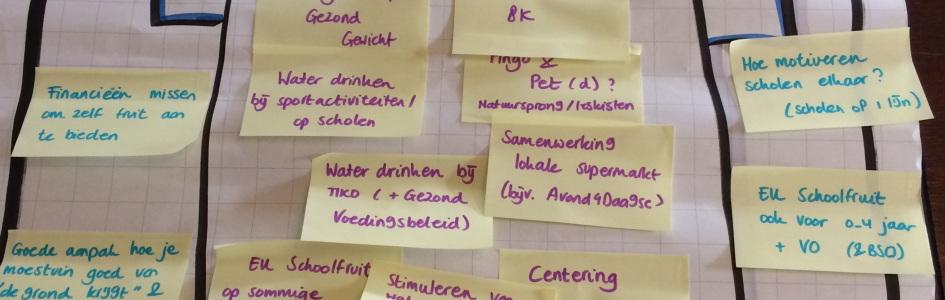 Gezond
Gewicht
8K
Water drinken
bij sportactiviteiten/
op scholen
Pet (d) ?
Natuursprong/leskisten
Hoe motiveren
scholen elkaar?
(scholen op 1 lijn)
Financieën missen
om zelf fruit aan
te bieden
Samenwerking
lokale supermarkt
(bijv. Avond4Daagse)
Water drinken bij
TIKO ( + Gezond
Voedingsbeleid)
EU Schoolfruit
ook voor 0-4 jaar
+ VO (&BSO)
Goede aanpak hoe je
moestuin goed van
de grond krijgt" &
EU Schoolfruit
op sommige
Stimuleren
Centering